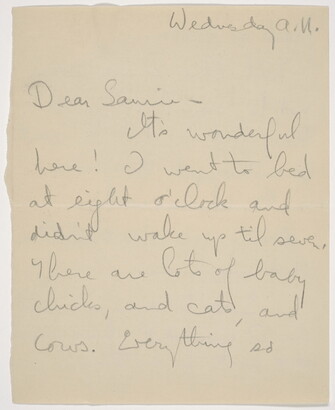 Wednesday A.M.
Dear Sammie –
It's wonderful
here! I went to bed
at eight o'clock and
didn't wake up til seven.
There are lots of baby
chicks, and cats, and
cows. Everything so